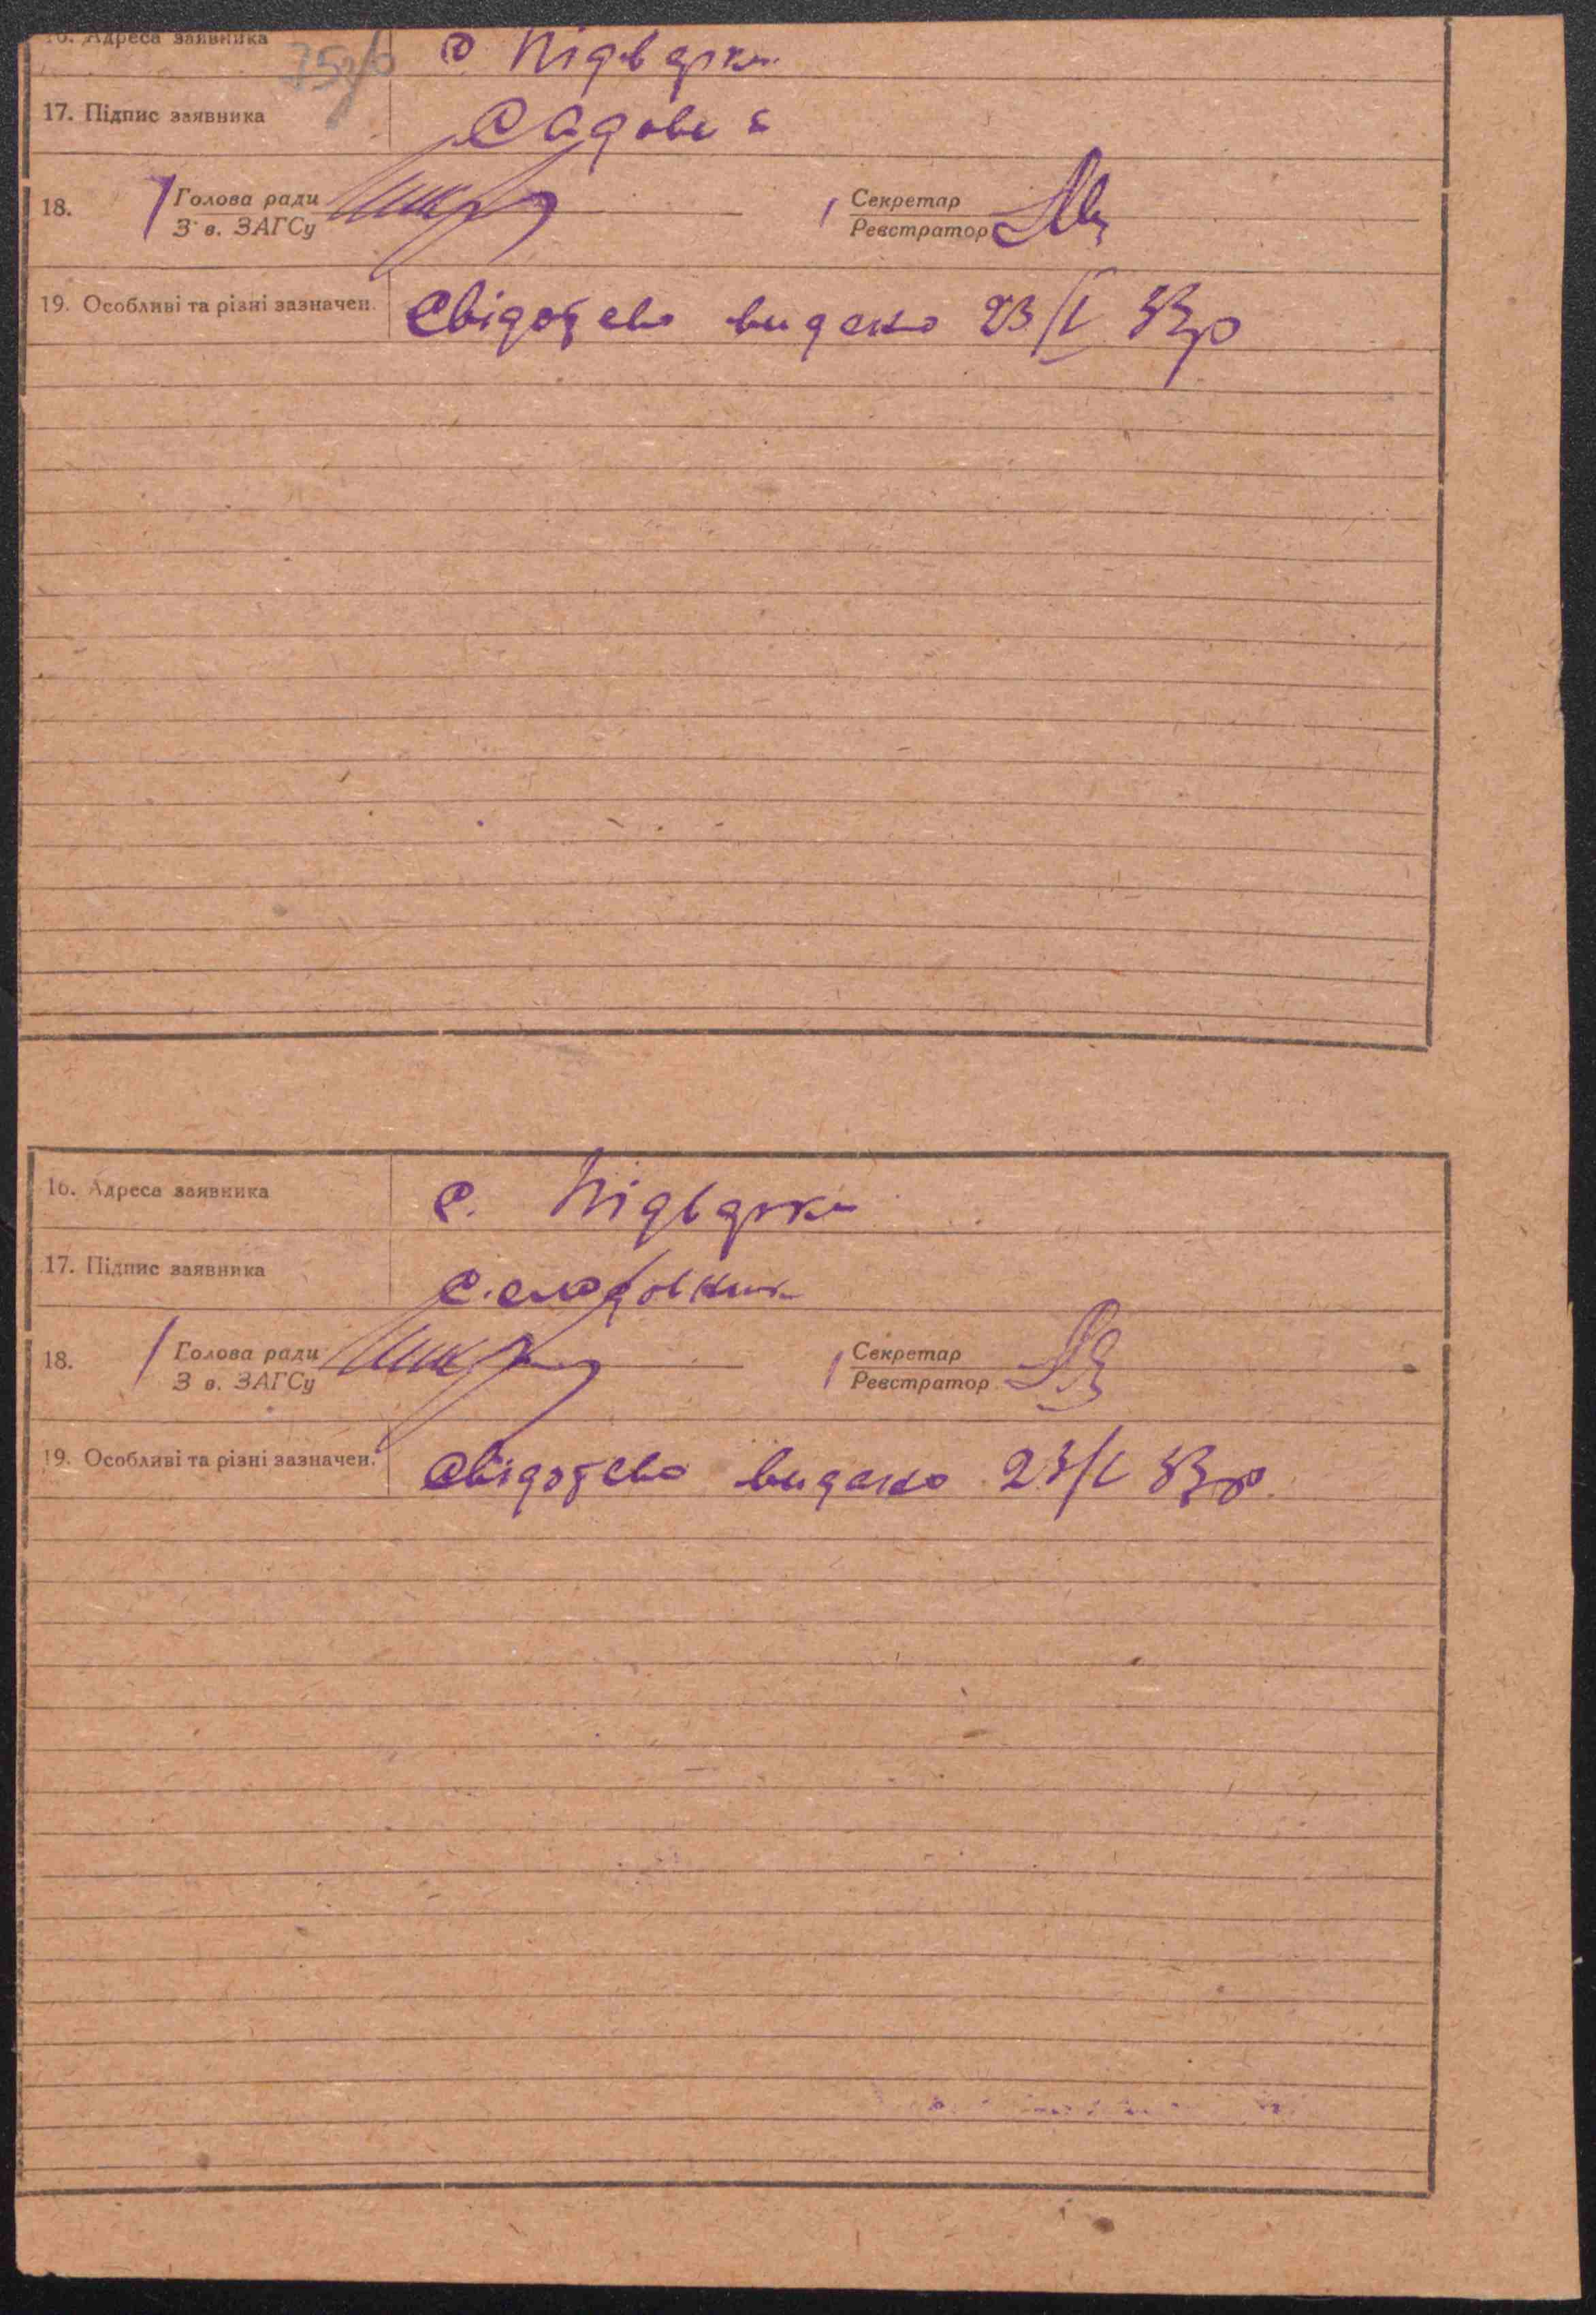 16. Адреса заявника с Підварки
75зв
17. Підпис заявника Садова
18. Голова ради Секретар
З в. ЗАГСу Реєстратор
19. Особливі та різні зазначен. Свідоцтво видано 23/I 33р
16. Адреса заявника с. Підварки
17. Підпис заявника
18. Голова ради Секретар
З в. ЗАГСу Реєстратор
19. Особливі та різні зазначен. свідоцтво видано 23/I 33р.